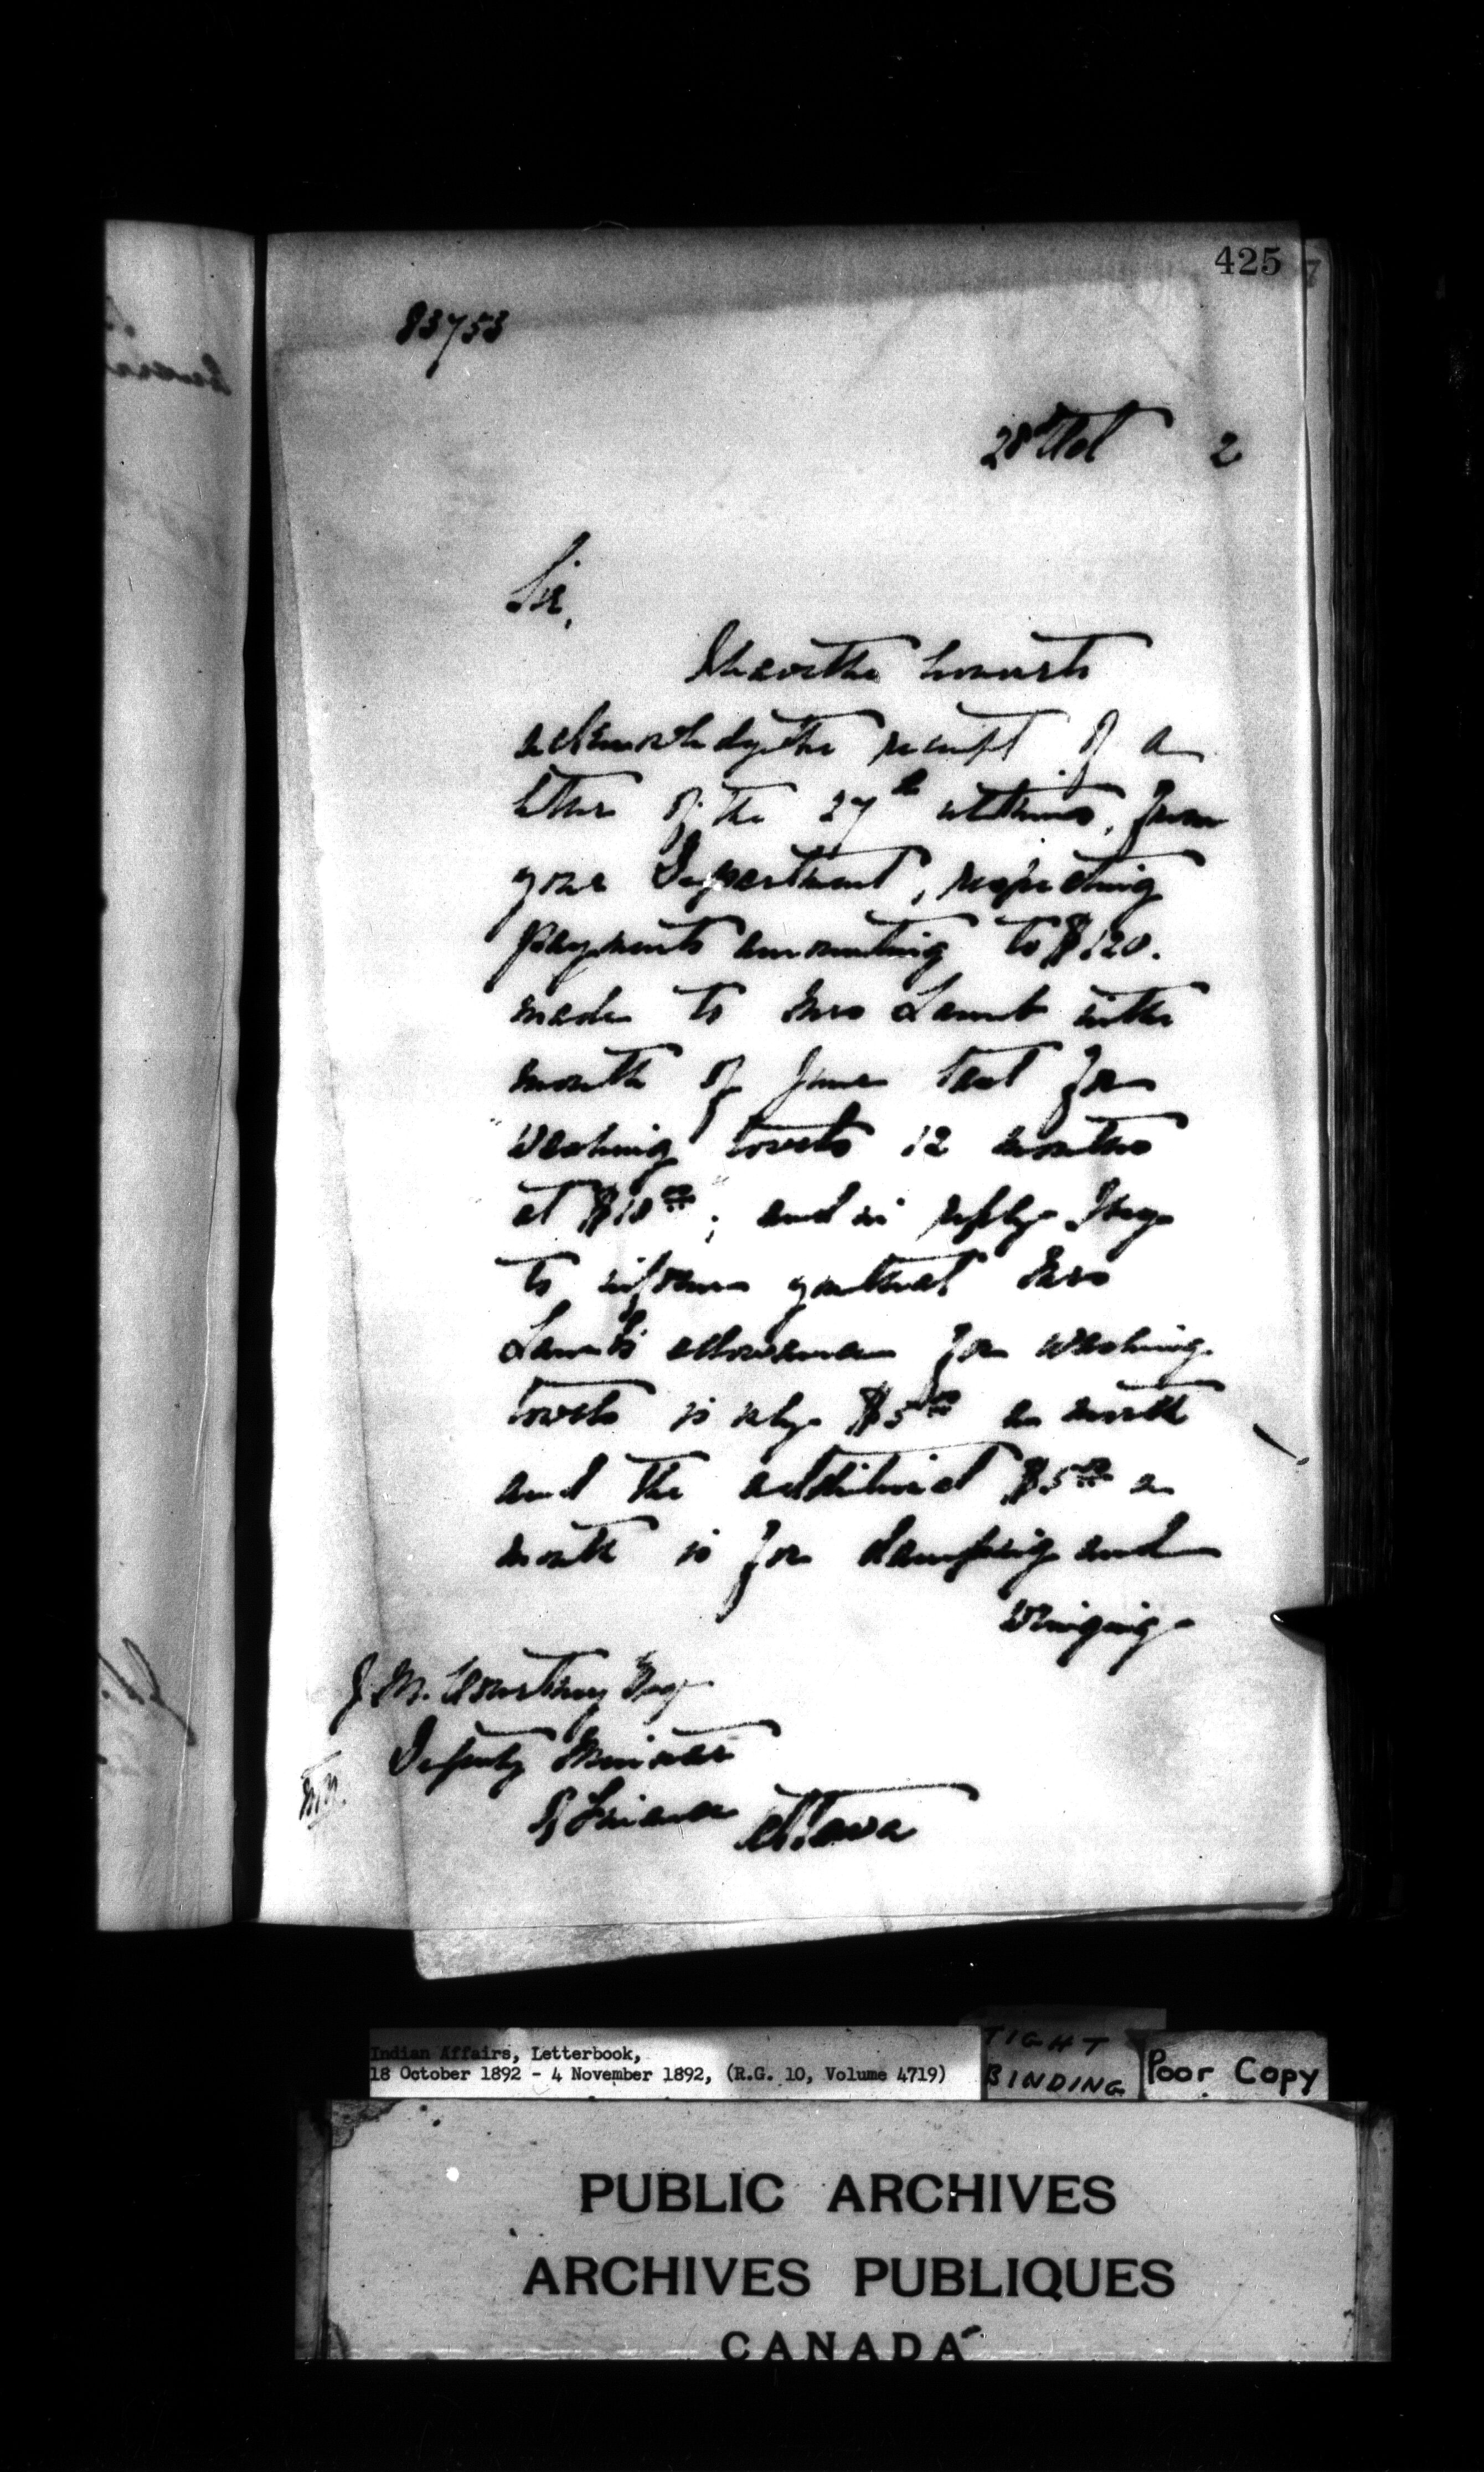 425
83753
28th Oct 2
Sir,
I have the honour to
acknowledge the receipt of a
letter of the 27th ultimo, from
your Department, respecting
payments amounting to $120.
made to Mrs Lamb in the
month of June last for
washing towels 12 months
at $10.00; and in reply I beg
to inform you that Mrs
Lamb's allowance for washing
towels is only $5.00 a month
and the additional $5.00 a
month is for damping and
wringing
J. M. Courtney Esq
Deputy Minister
of Finance Ottawa
Indian Affairs, Letterbook,
18 October 1892 - 4 November 1892, (R.G. 10, Volume 4719)
TIGHT
BINDING
Poor Copy
PUBLIC ARCHIVES
ARCHIVES PUBLIQUES
CANADA